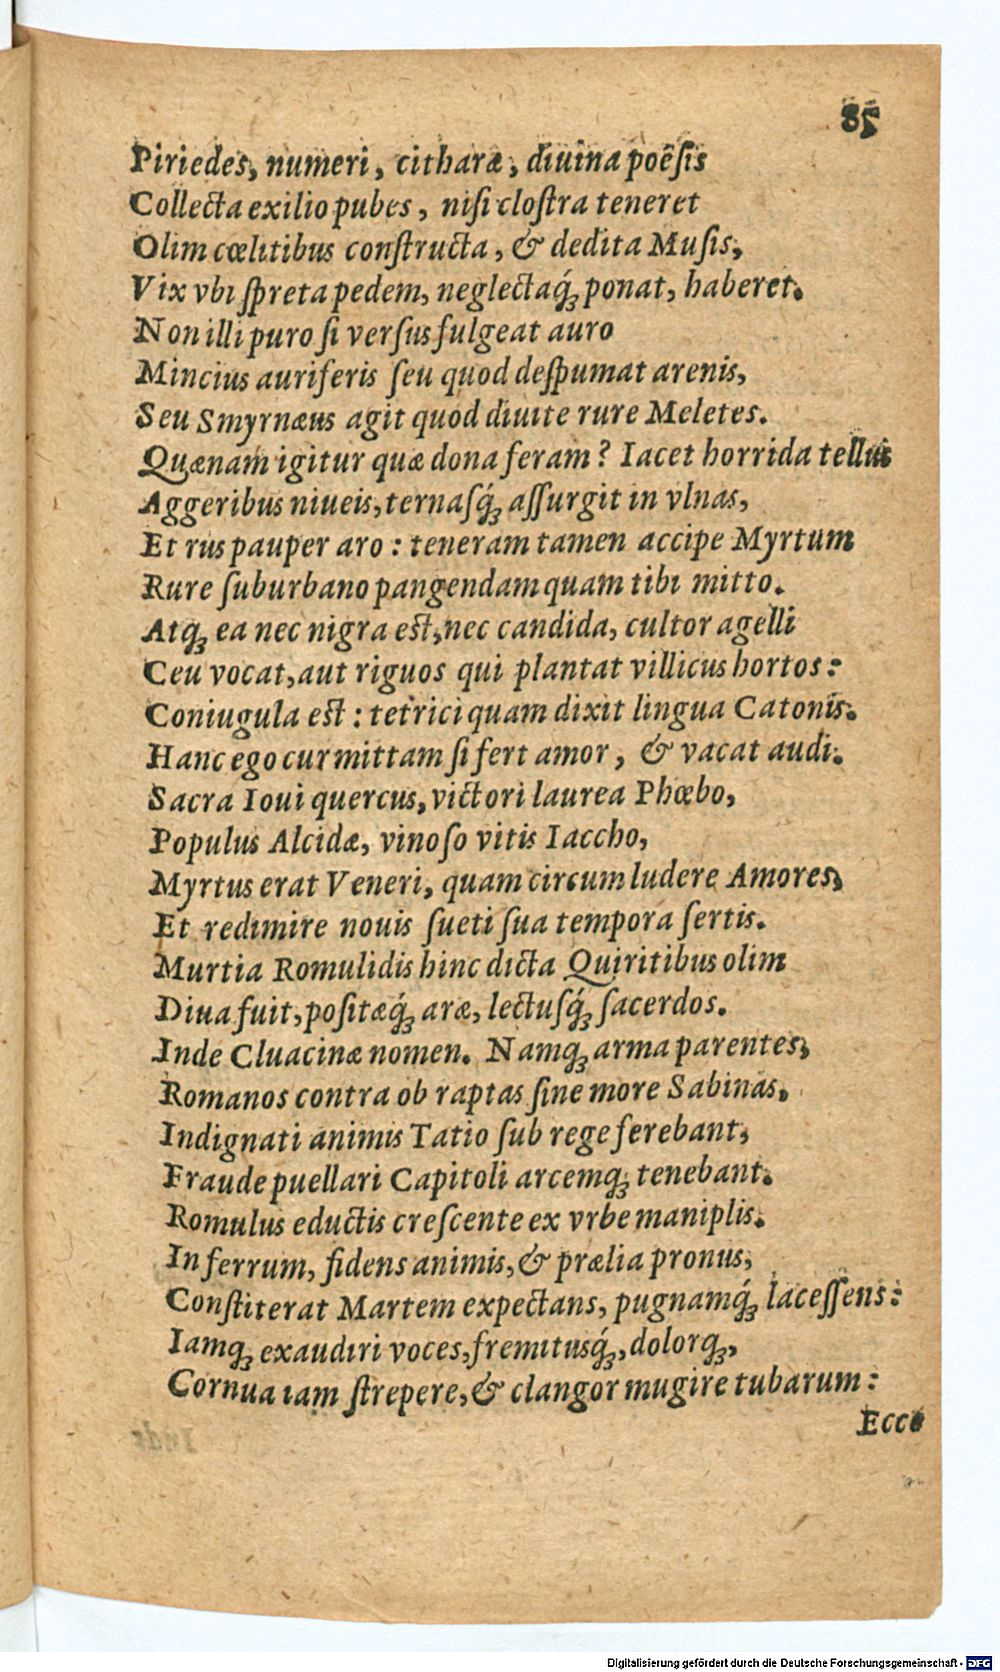 85
Piriedes, numeri, citharæ, diuina poësis
Collecta exilio pubes, nisi clostra teneret
Olim cœlitibus constructa, & dedita Musis,
Vix vbi spreta pedem, neglectaq́ꝫ ponat, haberet.
Non illi puro si versus fulgeat auro
Mincius auriferis seu quod despumat arenis,
Seu Smyrnæus agit quod diuite rure Meletes.
Quænam igitur quæ dona feram? Iacet horrida tellus
Aggeribus niueis, ternasq́ꝫ assurgit in vlnas,
Et rus pauper aro: teneram tamen accipe Myrtum
Rure suburbano pangendam quam tibi mitto.
Atqꝫ ea nec nigra est, nec candida, cultor agelli
Ceu vocat, aut riguos qui plantat villicus hortos:
Coniugula est: tetrici quam dixit lingua Catonis.
Hanc ego cur mittam si fert amor, & vacat audi.
Sacra Ioui quercus, victori laurea Phœbo,
Populus Alcidæ, vinoso vitis Iaccho,
Myrtus erat Veneri, quam circum ludere Amores,
Et redimire nouis sueti sua tempora sertis.
Murtia Romulidis hinc dicta Quiritibus olim
Diua fuit, positæq́ꝫ aræ, lectusq́ꝫ sacerdos.
Inde Cluacinæ nomen. Namqꝫ arma parentes,
Romanos contra ob raptas sine more Sabinas,
Indignati animis Tatio sub rege ferebant,
Fraude puellari Capitoli arcemqꝫ tenebant.
Romulus eductis crescente ex vrbe maniplis.
In ferrum, fidens animis, & prælia pronus,
Constiterat Martem expectans, pugnamq́ꝫ lacessens:
Iamqꝫ exaudiri voces, fremitusq́ꝫ, dolorqꝫ,
Cornua iam strepere, & clangor mugire tubarum:
Ecce
Digitalisierung gefördert durch die Deutsche Forschungsgemeinschaft - DFG